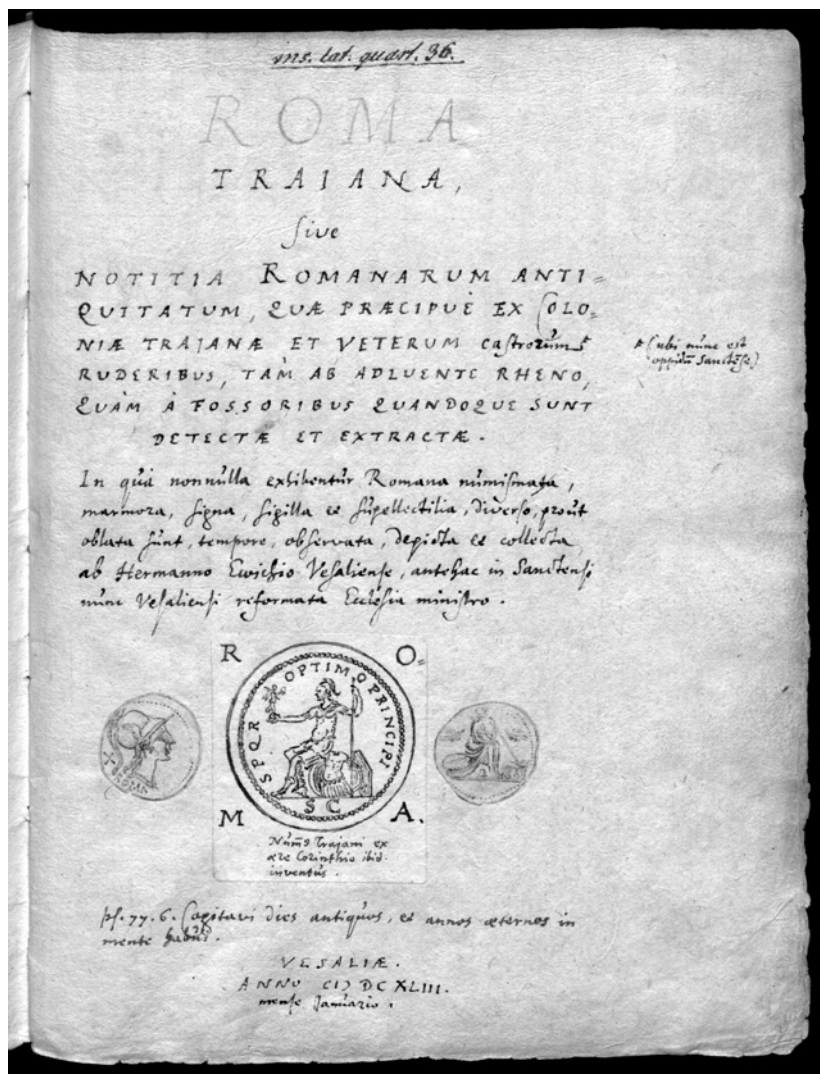 ms. lat. quart. 36.
ROMA
TRAIANA,
sive
NOTITIA ROMANARUM ANTI=
QUITATUM, QUÆ PRÆCIPUÈ EX COLO=
NIÆ TRAJANÆ ET VETERUM castrorum
RUDERIBUS, TÀM AB ADLUENTE RHENO,
QUÀM À FOSSORIBUS QUANDOQUE SUNT
DETECTÆ ET EXTRACTÆ.
(ubi nunc est
oppidū Sanctēse)
In quâ nonnulla exhibentur Romana numismata,
marmora, signa, sigilla et supellectilia, diverso, prout
oblata sunt, tempore, observata, depicta et collecta
ab Hermanno Ewichio Vesaliense, antehac in Sanctensi
nunc Vesaliensi reformata Ecclesia ministro.
R O=
SPQR OPTIMO PRINCIPI
S C
X ROMA
M A.
Num9 Trajani ex
ære Corinthio ibid.
inventus.
ps. 77. 6. Cogitavi dies antiquos, et annos æternos in
mente habui.
VESALIÆ.
ANNO CIↃ DC XLIII.
mense Januario.